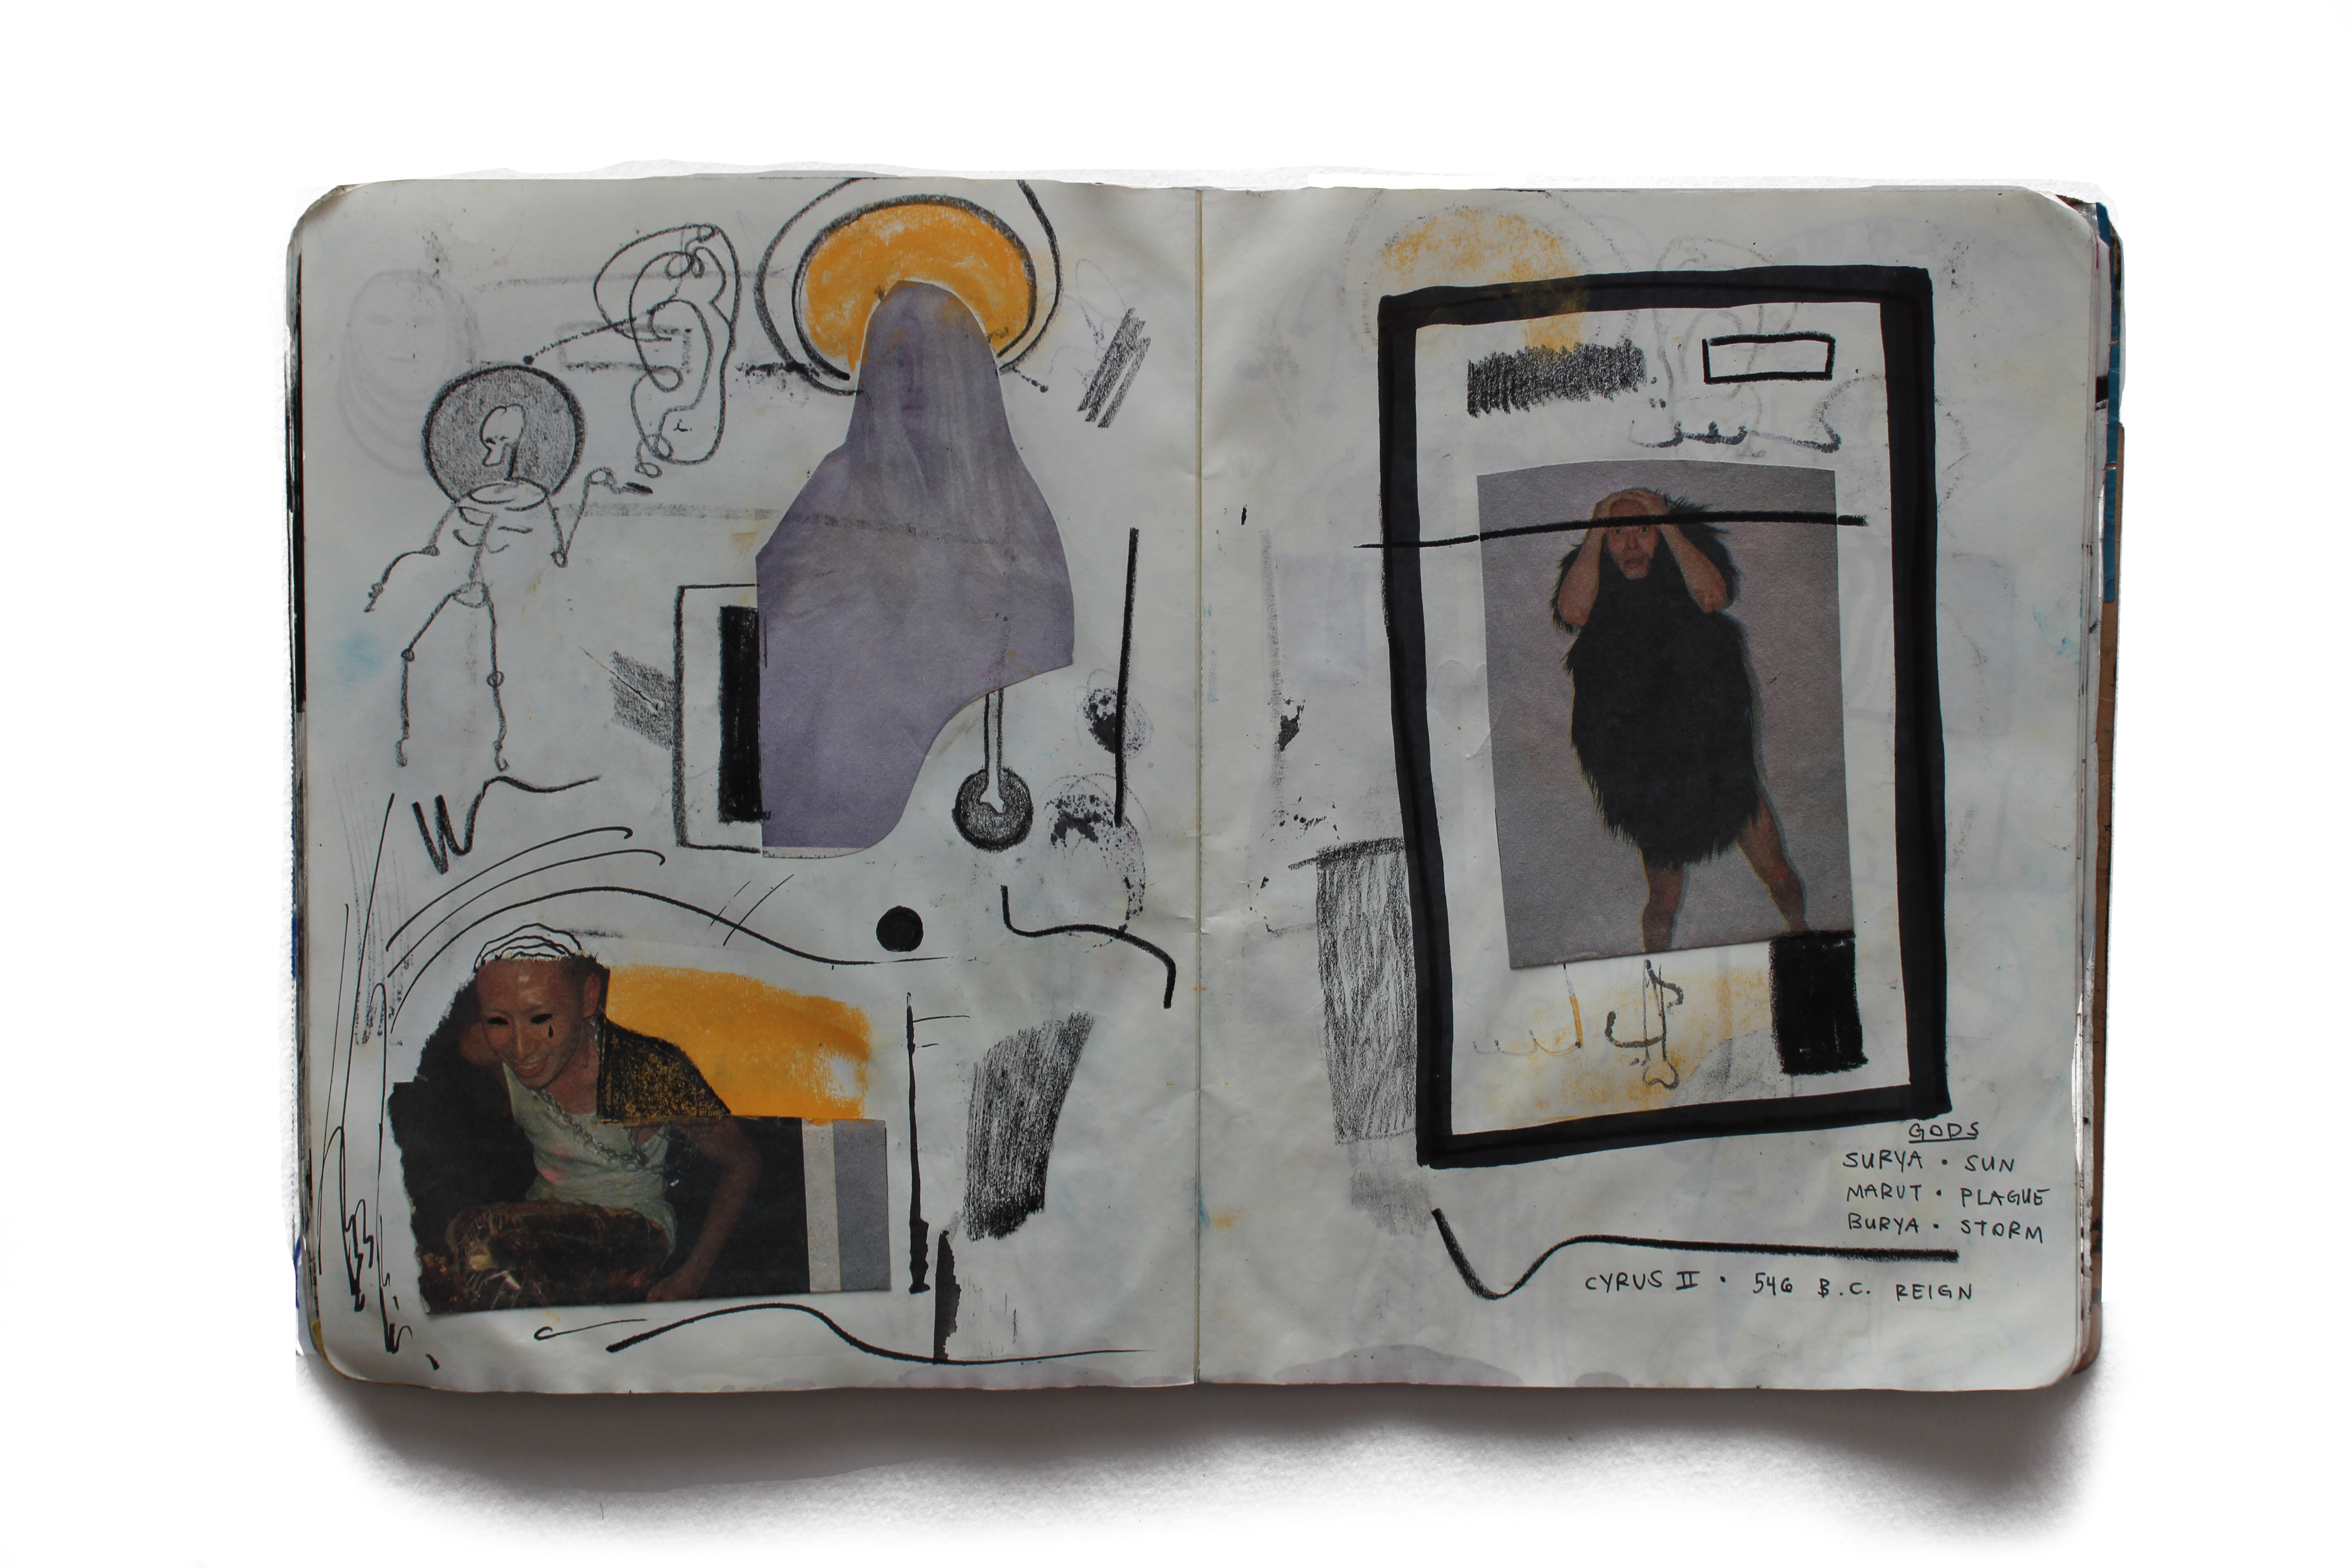 GODS
SURYA • SUN
MARUT • PLAGUE
BURYA • STORM
CYRUS II • 546 B.C. REIGN